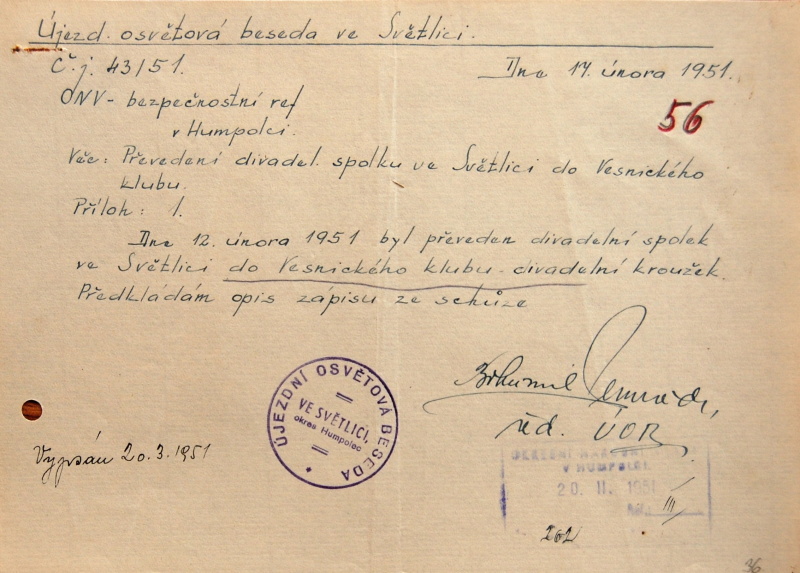 Újezd. osvětová beseda ve Světlici.
Č.j. 43/51.
Dne 17. února 1951.
ONV - bezpečnostní ref
v Humpolci.
56
Věc: Převedení divadel. spolku ve Světlici do Vesnického
klubu.
Příloh: 1.
Dne 12. února 1951 byl převeden divadelní spolek
ve Světlici do Vesnického klubu - divadelní kroužek.
Předkládám opis zápisu ze schůze
ÚJEZDNÍ OSVĚTOVÁ BESEDA
VE SVĚTLICI,
okres Humpolec
Bohumil
řed. ÚOB
Vypsán 20.3.1951
OKRESNÍ NÁRODNÍ
V HUMPOLCI
20. II. 1951
III/
202
36